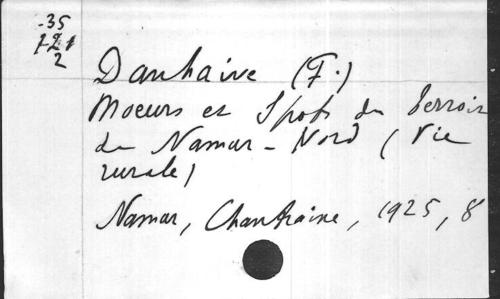 -35
121
2
Danhaive (F.)
Moeurs et Spots du Terroir
de Namur - Nord (Vie
rurale)
Namur, Chantraine, 1925, 8